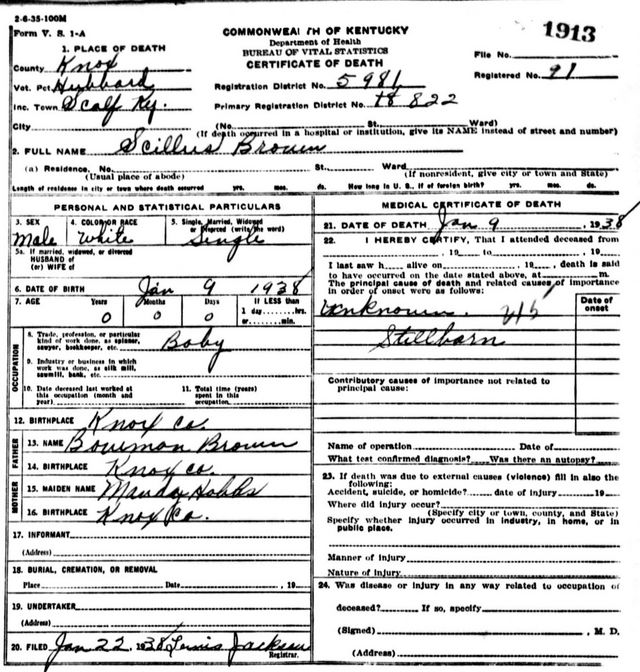 2-6-35-100M
Form V. S. 1-A
COMMONWEALTH OF KENTUCKY
Department of Health
BUREAU OF VITAL STATISTICS
CERTIFICATE OF DEATH
1913
File No.
Registered No. 91
1. PLACE OF DEATH
County Knox
Vot. Pct. Hubbard
Inc. Town Scalf Ky.
Registration District No. 5981
Primary Registration District No. 18822
City (No. St. Ward)
(If death occurred in a hospital or institution, give its NAME instead of street and number)
2. FULL NAME Scillus Brown
(a) Residence. No. St., Ward
(Usual place of abode) (If nonresident, give city or town and State)
Length of residence in city or town where death occurred yrs. mos. ds. How long in U. S., if of foreign birth? yrs. mos. ds.
PERSONAL AND STATISTICAL PARTICULARS
3. SEX Male
4. COLOR OR RACE White
5. Single, Married, Widowed or Divorced (write the word) Single
5a. If married, widowed, or divorced
HUSBAND of
(or) WIFE of
6. DATE OF BIRTH Jan 9 1938
7. AGE Years Months Days If LESS than
0 0 0 1 day, hrs.
or min.
OCCUPATION
8. Trade, profession, or particular
kind of work done, as spinner,
sawyer, bookkeeper, etc. Baby
9. Industry or business in which
work was done, as silk mill,
sawmill, bank, etc.
10. Date deceased last worked at
this occupation (month and
year)
11. Total time (years)
spent in this
occupation
12. BIRTHPLACE Knox co.
FATHER
13. NAME Bowman Brown
14. BIRTHPLACE Knox co.
MOTHER
15. MAIDEN NAME Manda Hobbs
16. BIRTHPLACE Knox co.
17. INFORMANT
(Address)
18. BURIAL, CREMATION, OR REMOVAL
Place Date , 19
19. UNDERTAKER
(Address)
20. FILED Jan 22, 1938 Lewis Jackson
Registrar.
MEDICAL CERTIFICATE OF DEATH
21. DATE OF DEATH Jan 9 , 1938
22. I HEREBY CERTIFY, That I attended deceased from
, 19 to , 19
I last saw h alive on , 19 , death is said
to have occurred on the date stated above, at m.
The principal cause of death and related causes of importance
in order of onset were as follows:
Date of
onset
Unknown
Stillborn
Contributory causes of importance not related to
principal cause:
Name of operation Date of
What test confirmed diagnosis? Was there an autopsy?
23. If death was due to external causes (violence) fill in also the
following:
Accident, suicide, or homicide? date of injury 19
Where did injury occur?
(Specify city or town, county, and State)
Specify whether injury occurred in industry, in home, or in
public place.
Manner of injury
Nature of injury
24. Was disease or injury in any way related to occupation of
deceased? If so, specify
(Signed) , M. D.
(Address)